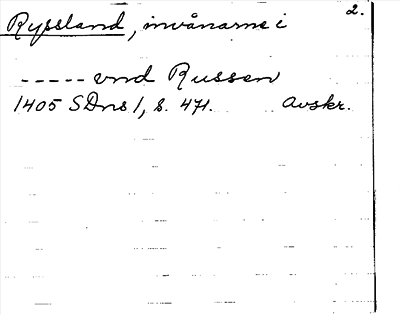 2.
Ryssland, invånarne i
----- vnd Russen
1405 SDns 1, s. 471. Avskr.